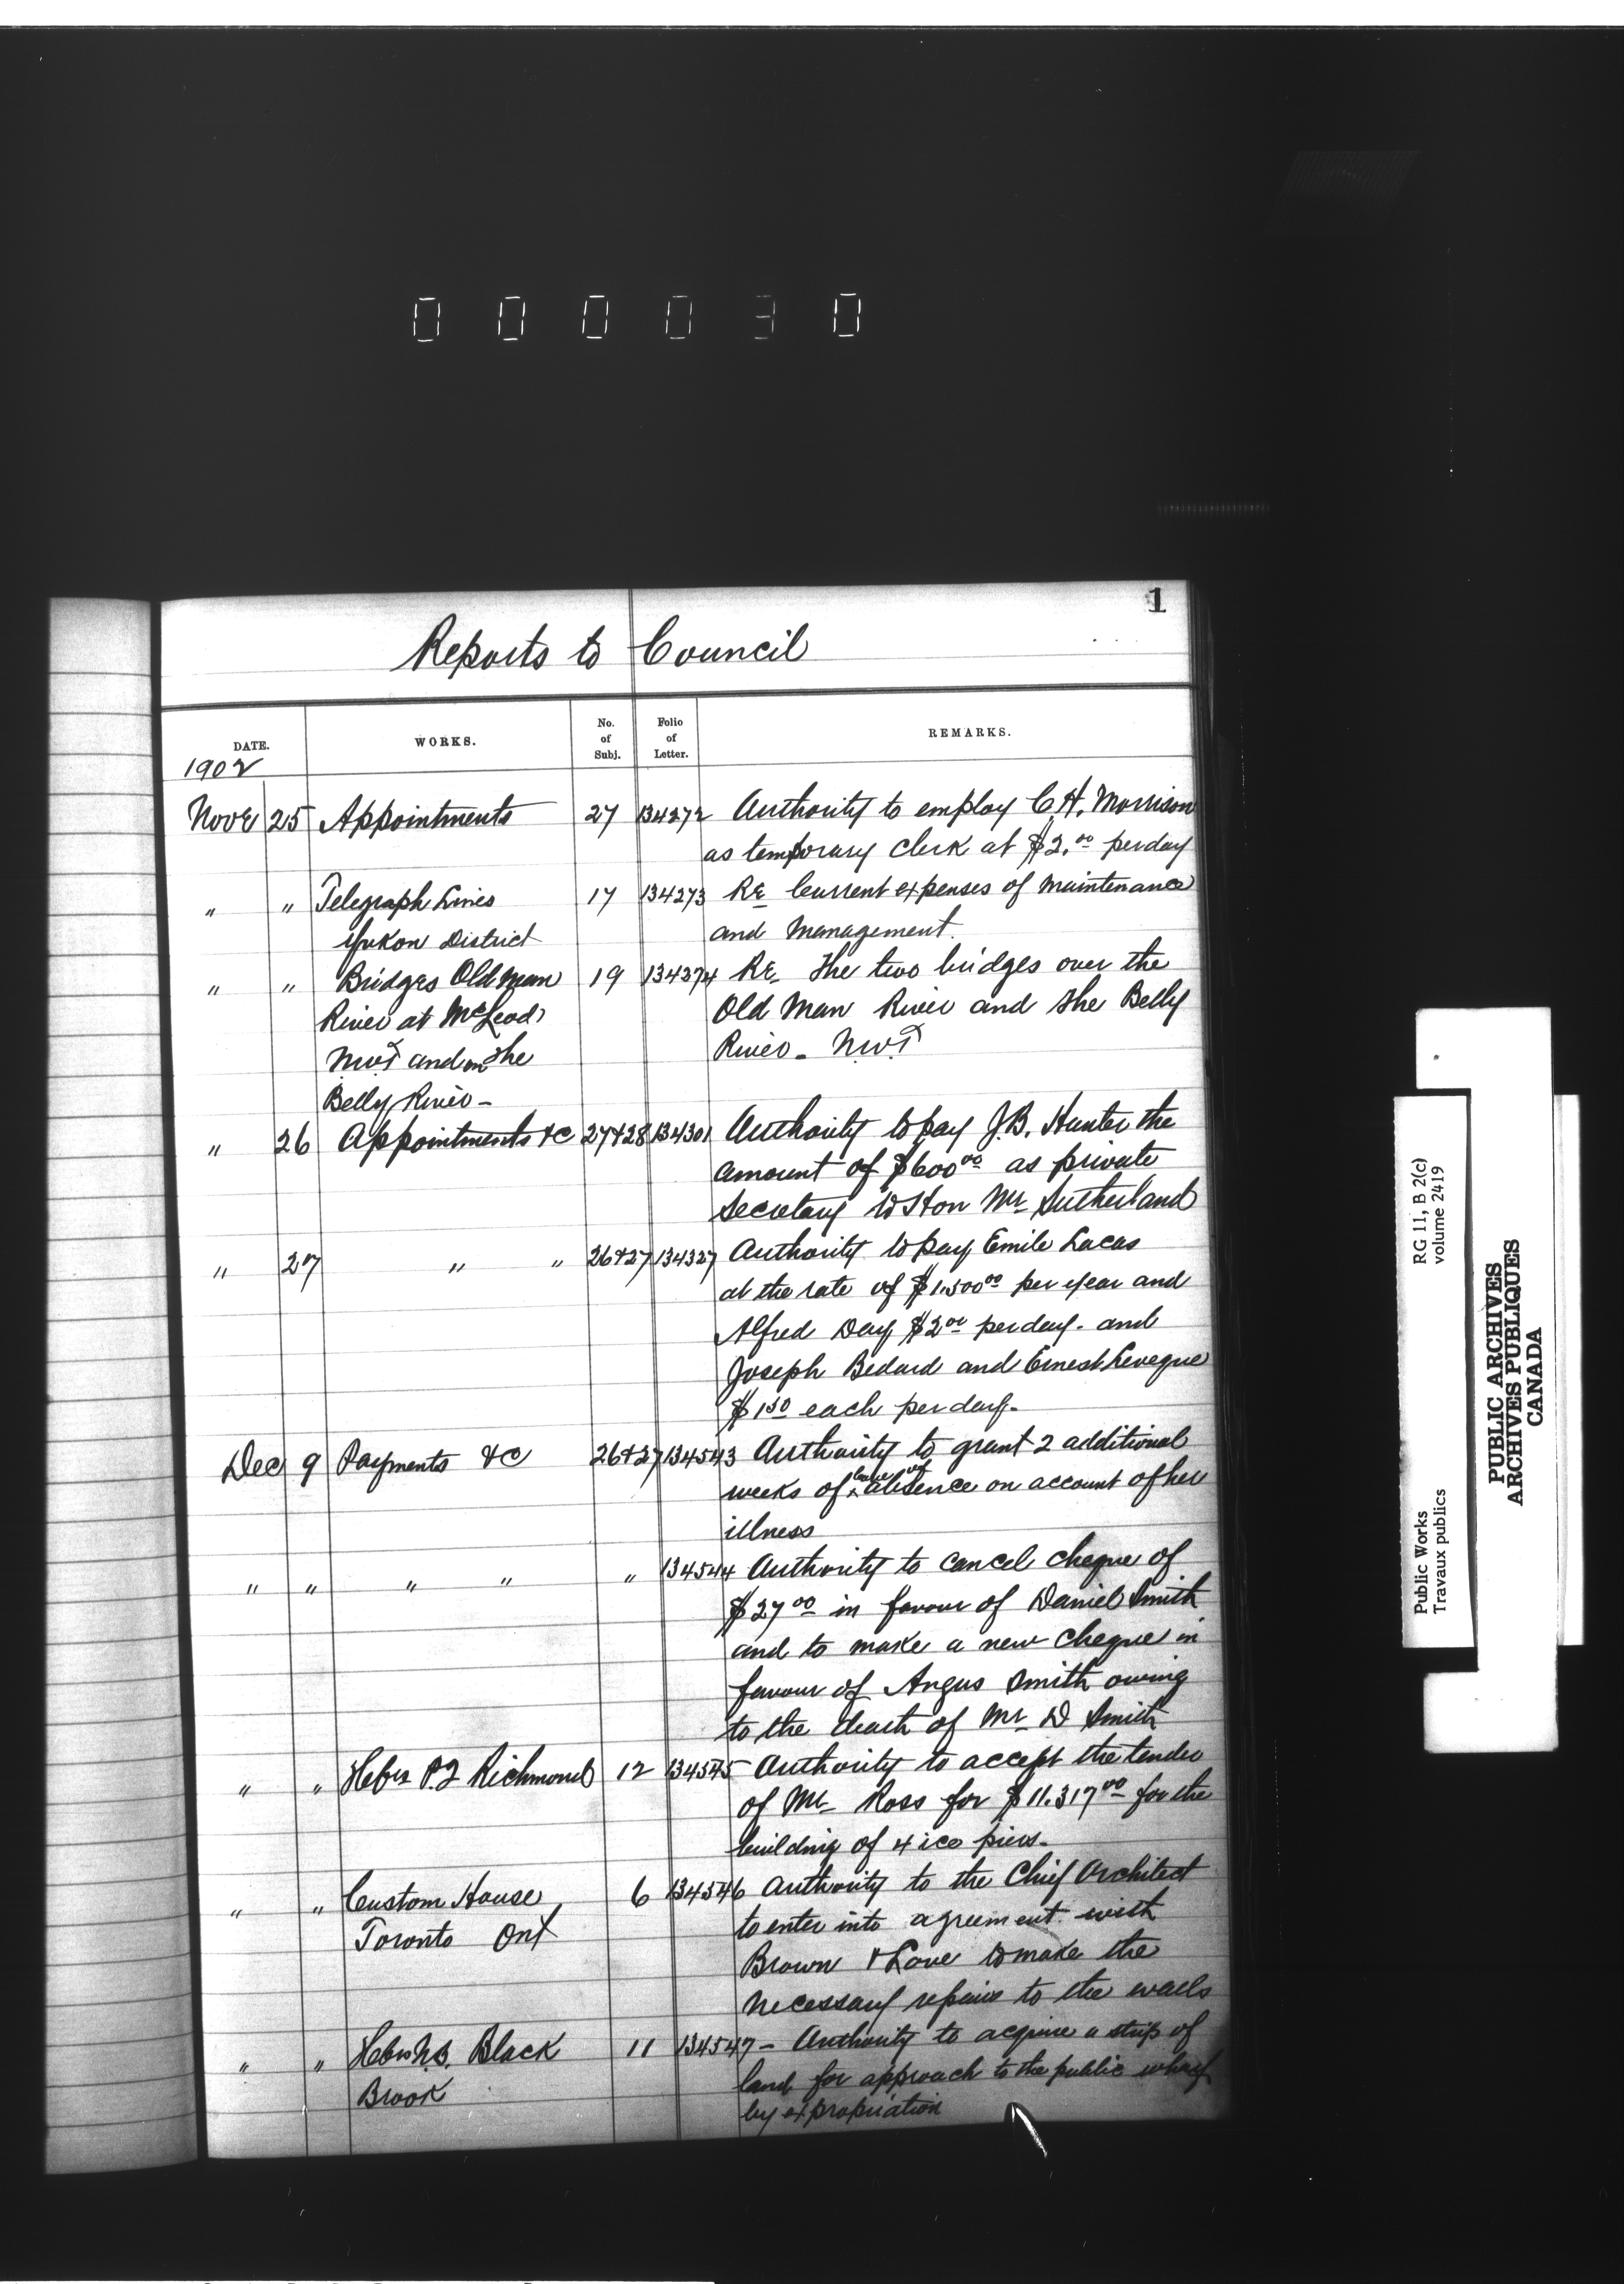 0 0 0 0 3 0
1
Reports to Council
DATE. WORKS. No. of Subj. Folio of Letter. REMARKS.
1902
Nove 25 Appointments 27 134272 Authority to employ C.H. Morrison
as temporary Clerk at $2.00 per day
" " Telegraph Lines 17 134273 Re Current expenses of Maintenance
Yukon District and Management.
" " Bridges Old Man 19 134274 Re The two bridges over the
River at McLeod, Old Man River and the Belly
N.W.T and on the River - N.W.T
Belly River -
" 26 Appointments &c 27&28 134301 Authority to pay J.B. Hunter the
amount of $600 00 as private
Secretary to Hon Mr Sutherland
" 27 " " 26&27 134327 Authority to pay Emile Lacas
at the rate of $1.500 00 per year and
Alfred Day $2 00 per day. and
Joseph Bedard and Ernest Leveque
$1 50 each per day.
Dec 9 Payments &c 26&27 134543 Authority to grant 2 additional
weeks of leave of absence on account of her
illness
" " " " " 134544 Authority to cancel cheque of
$27 00 in favour of Daniel Smith
and to make a new cheque in
favour of Angus Smith owing
to the death of Mr D Smith
" " Hbrs P.Q Richmond 12 134545 Authority to accept the tender
of Mr Ross for $11.317 00 for the
building of 4 ice piers.
" " Custom House 6 134546 Authority to the Chief Architect
Toronto Ont to enter into agreement with
Brown & Love to make the
necessary repairs to the walls
" " Hbrs N.B. Black 11 134547 - Authority to acquire a strip of
Brook land for approach to the public wharf
by expropriation
Public Works RG 11, B 2(c)
Travaux publics volume 2419
PUBLIC ARCHIVES
ARCHIVES PUBLIQUES
CANADA